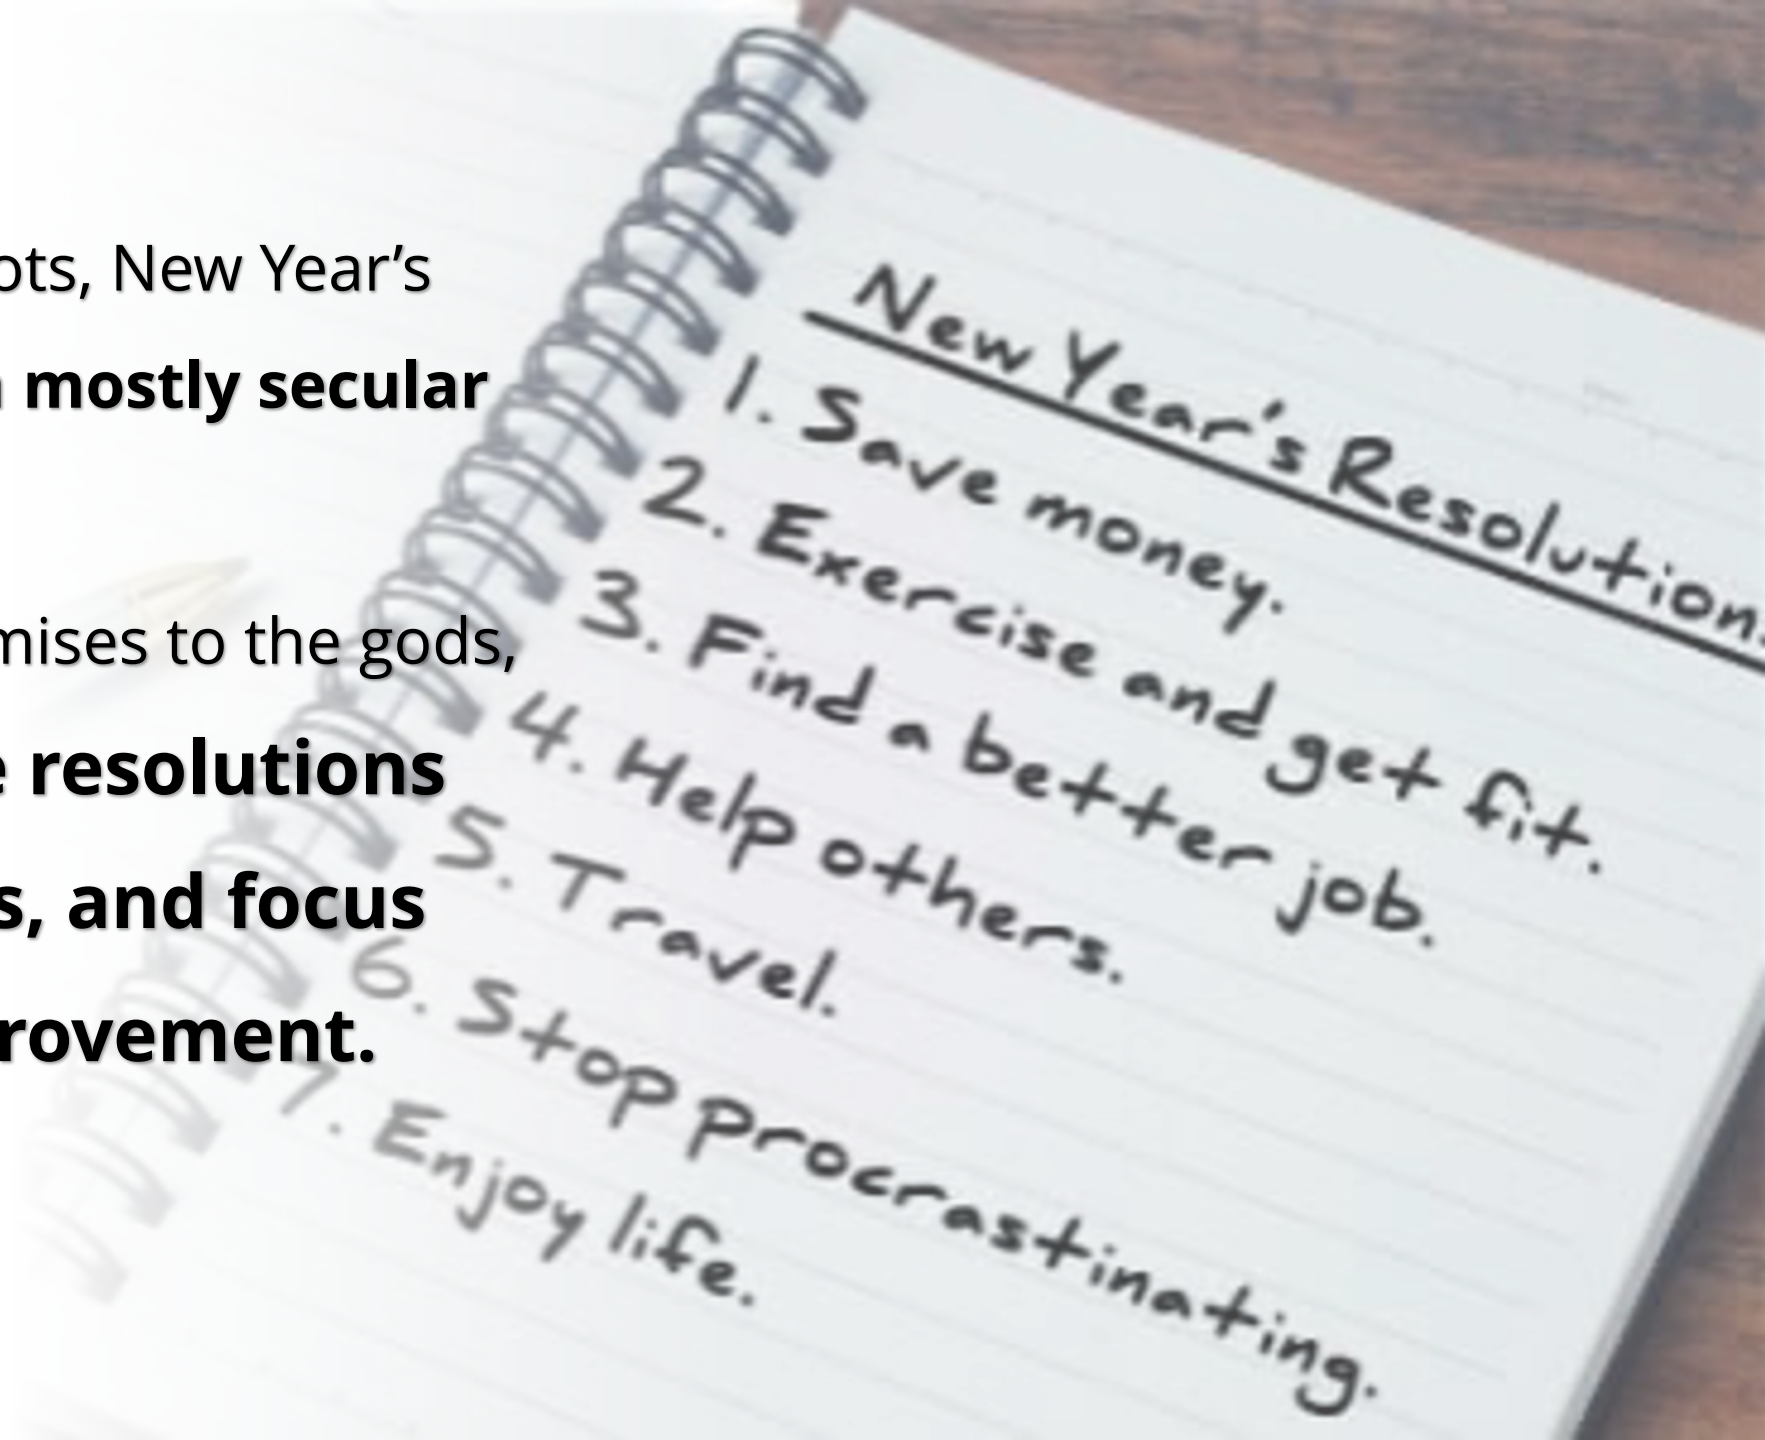 ots, New Year’s
mostly secular
mises to the gods,
resolutions
s, and focus
rovement.
New Year's Resolutions
1. Save money.
2. Exercise and get fit.
3. Find a better job.
4. Help others.
5. Travel.
6. Stop procrastinating.
7. Enjoy life.